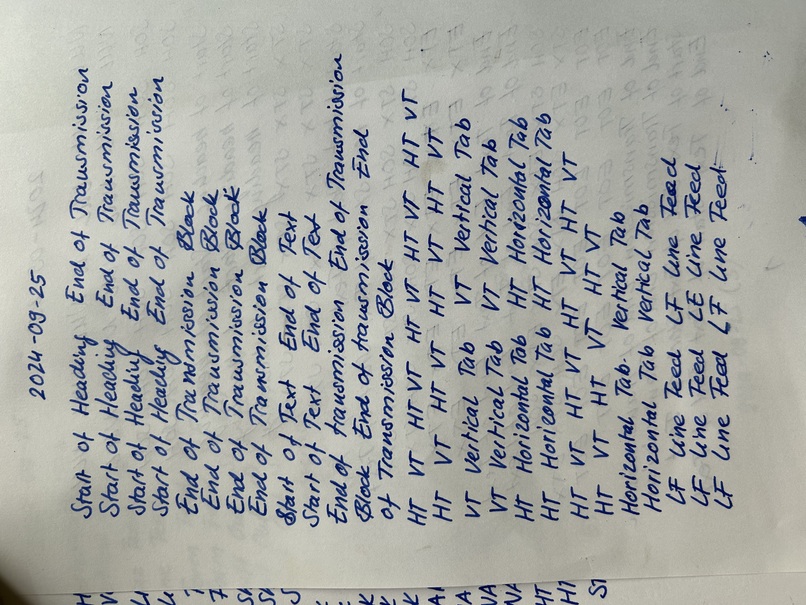 2024-09-25
Start of Heading End of Transmission
Start of Heading End of Transmission
Start of Heading End of Transmission
Start of Heading End of Transmission
End of Transmission Block
End of Transmission Block
End of Transmission Block
End of Transmission Block
Start of Text End of Text
Start of Text End of Text
End of transmission End of Transmission
Block End of transmission End
of Transmission Block
HT VT HT VT HT VT HT VT HT VT
HT VT HT VT HT VT HT VT
VT Vertical Tab VT Vertical Tab
VT Vertical Tab VT Vertical Tab
HT Horizontal Tab HT Horizontal Tab
HT Horizontal Tab HT Horizontal Tab
HT VT HT VT HT VT HT VT
HT VT HT VT HT VT
Horizontal Tab Vertical Tab
Horizontal Tab Vertical Tab
LF Line Feed LF Line Feed
LF Line Feed LF Line Feed
LF Line Feed LF Line Feed